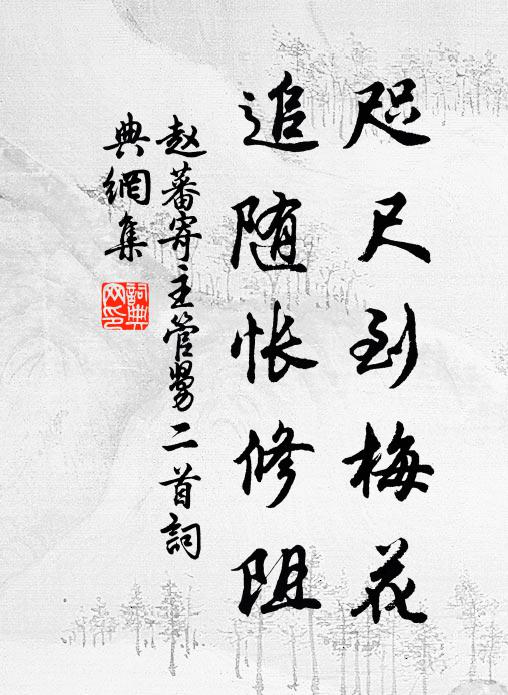 咫尺到梅花
追随怅修阻
赵蕃寄主管舅二首詞
典網集
詞典网印